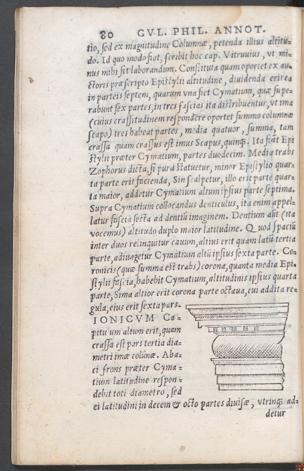 80 GVL. PHIL. ANNOT.
tio, sed ex magnitudine Columnæ, petenda illius altitu-
do. Id quo modo fiat, scribit hoc cap. Vitruuius, vt mi-
nus mihi sit laborandum. Constituta quam oportet ex au-
ctoris præscripto Epistylij altitudine, diuidenda erit ea
in parteis septem, quarum vna fiet Cymatium, quæ supe-
rabunt sex partes, in tres fascias ita distribuentur, vt ima
(cuius crassitudinem respondere oportet summo columnæ
scapo) tres habeat partes, media quatuor, summa, tam
crassa quam crassus est imus Scapus, quinq;. Ita fiunt Epi
stylij præter Cymatium, partes duodecim. Media trabs
Zophorus dicta, si pura statuetur, minor Epistylio quar-
ta parte erit facienda. Sin scalpetur, illo erit parte quar-
ta maior, additur Cymatium altum ipsius parte septima.
Supra Cymatium collocandus denticulus, ita enim appel-
latur fascia secta ad dentiū imaginem. Dentium aūt (ita
vocemus) altitudo duplo maior latitudine. Quod spacij
inter duos relinquitur cauum, altius erit quam latū tertia
parte, adiungetur Cymatium altū ipsius sexta parte. Co-
ronicis (quæ summa est trabs) corona, quanta media Epi-
stylij fascia, habebit Cymatium, altitudinis ipsius quarta
parte, Sima altior erit corona parte octaua, cui addita re-
gula, eius erit sexta pars.
IONICVM Ca-
pitulum altum erit, quam
crassa est pars tertia dia-
metri imæ colūnæ. Aba-
ci frons præter Cyma-
tium latitudine respon-
debit toti diametro, sed
ei latitudini in decem & octo partes diuisæ, vtrinq; ad-
detur